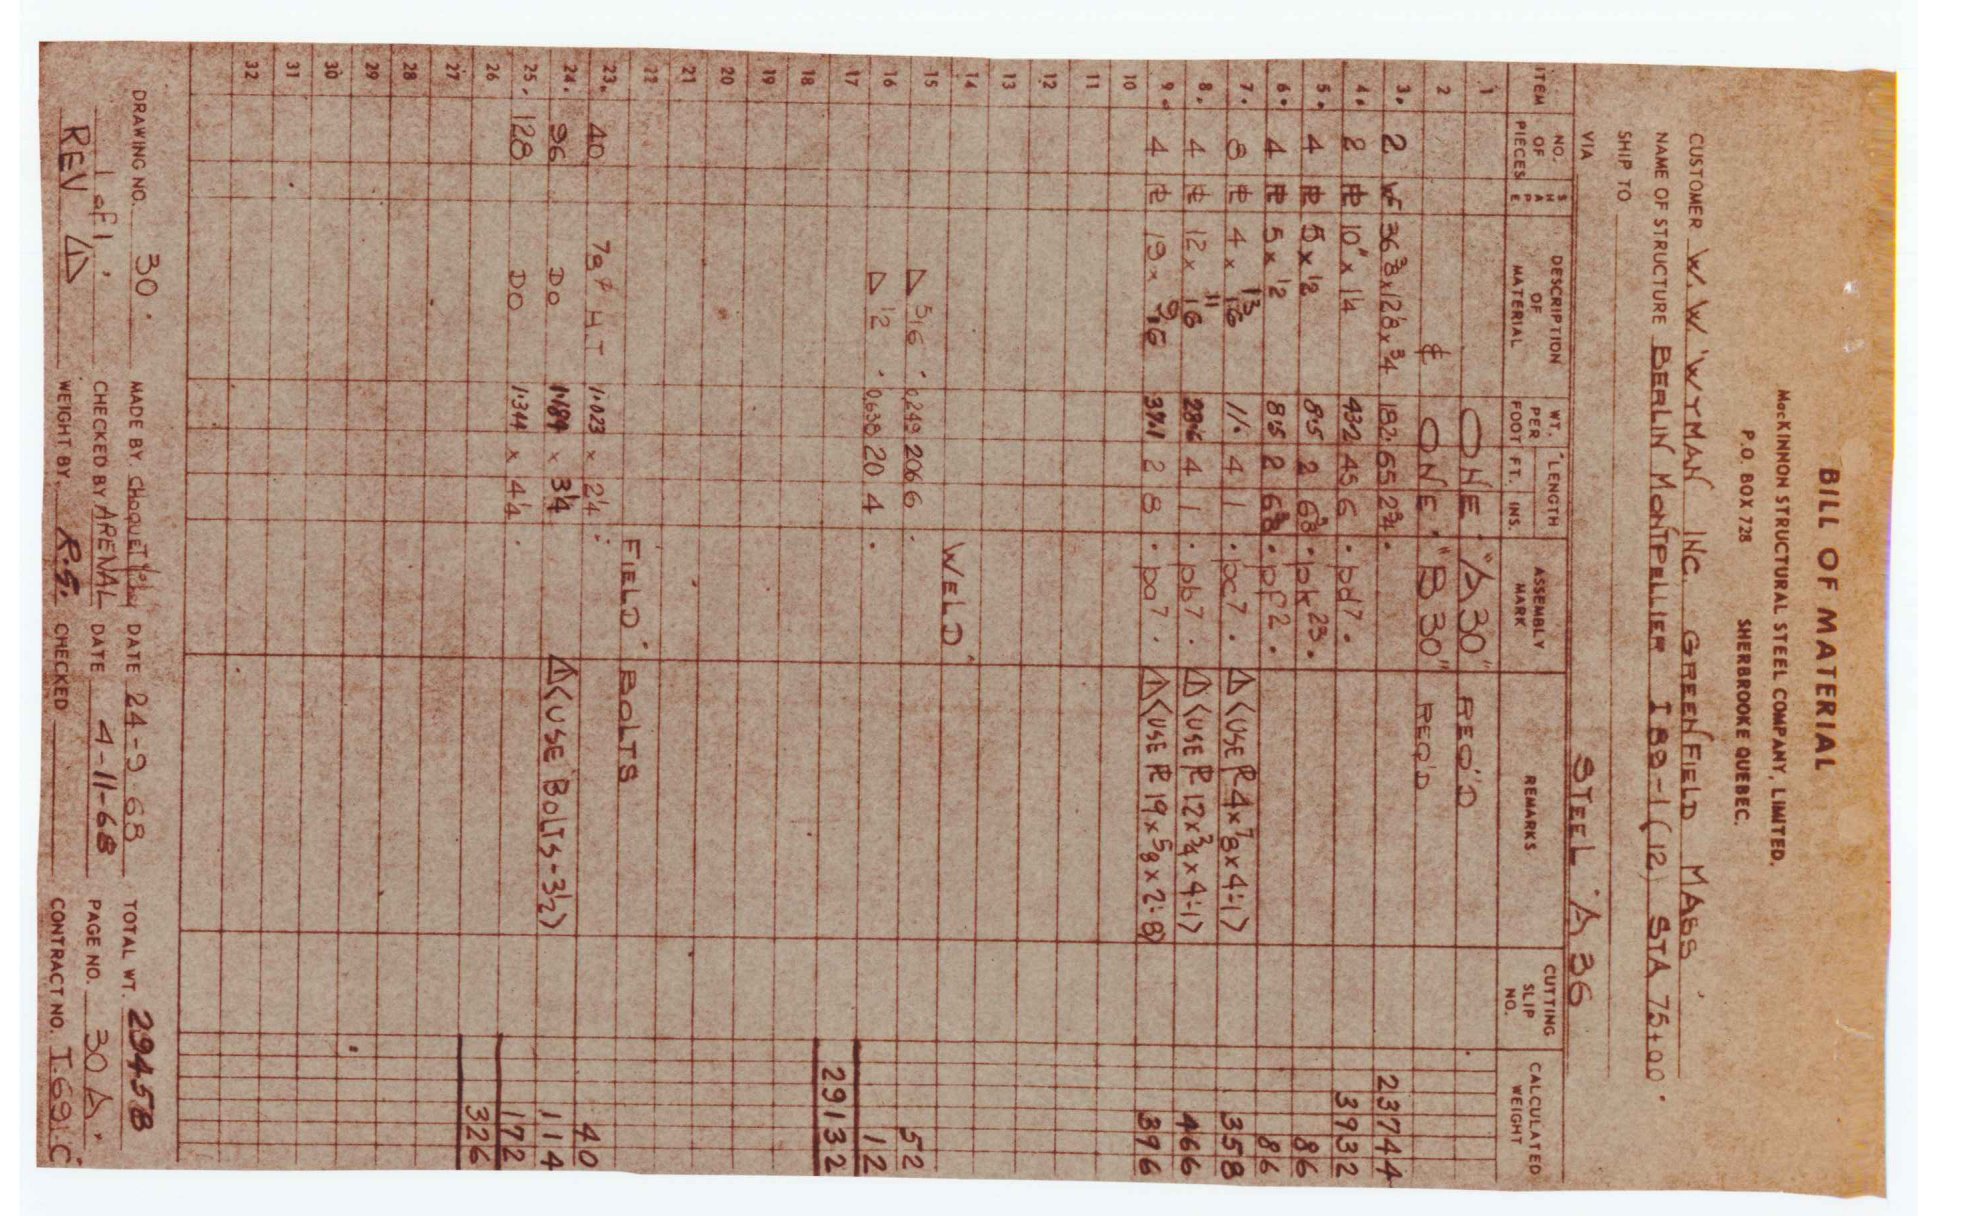 BILL OF MATERIAL
MacKINNON STRUCTURAL STEEL COMPANY, LIMITED.
P.O. BOX 728 SHERBROOKE QUEBEC.
CUSTOMER W.W WYMAN INC. GREENFIELD MASS
NAME OF STRUCTURE BERLIN MONTPELLIER I 89-1(12) STA 75+00.
SHIP TO
VIA STEEL A 36
ITEM NO. OF PIECES SHAPE DESCRIPTION OF MATERIAL WT. PER FOOT LENGTH FT. INS. ASSEMBLY MARK REMARKS CUTTING SLIP NO. CALCULATED WEIGHT
1 ONE "A30" REQ'D
2 & ONE "B30" REQ'D
3. 2 WF 36 3/8 x 12 1/8 x 3/4 182. 65 2 3/4. 23744
4. 2 PL 10" x 1 1/4 432 45 6. bd7. 3932
5. 4 PL 5 x 1/2 85 2 6 3/8. pk23. 86
6. 4 PL 5 x 1/2 85 2 6 3/8. pf2. 86
7. 8 PL 4 x 13/16 11. 4 1. bc7. △<USE PL 4x7/8x4-1> 358
8. 4 PL 12 x 11/16 28.6 4 1. pb7. △<USE PL 12x3/4x4-1> 466
9. 4 PL 19 x 9/16 37.1 2 8. ba7. △<USE PL 19x5/8x2-8> 396
10
11
12
13
14 WELD
15 △ 5/16 0.249 206 6. 52
16 △ 1/2 0.638 20 4. 12
17 29132
18
19
20
21
22 FIELD BOLTS
23. 40 7/8 ⌀ HT 1.023 x 2 1/4. 40
24. 96 DO 1.184 x 3 1/4 △<USE BOLTS-3 1/2> 114
25. 128 DO 1.344 x 4 1/4. 172
26 326
27
28
29
30
31
32
DRAWING NO. 30. MADE BY. DATE 24-9-68 TOTAL WT. 29458
1 of 1. CHECKED BY ARENAL DATE 4-11-68 PAGE NO. 30 A.
REV △ WEIGHT BY R.S. CHECKED CONTRACT NO. I.691C